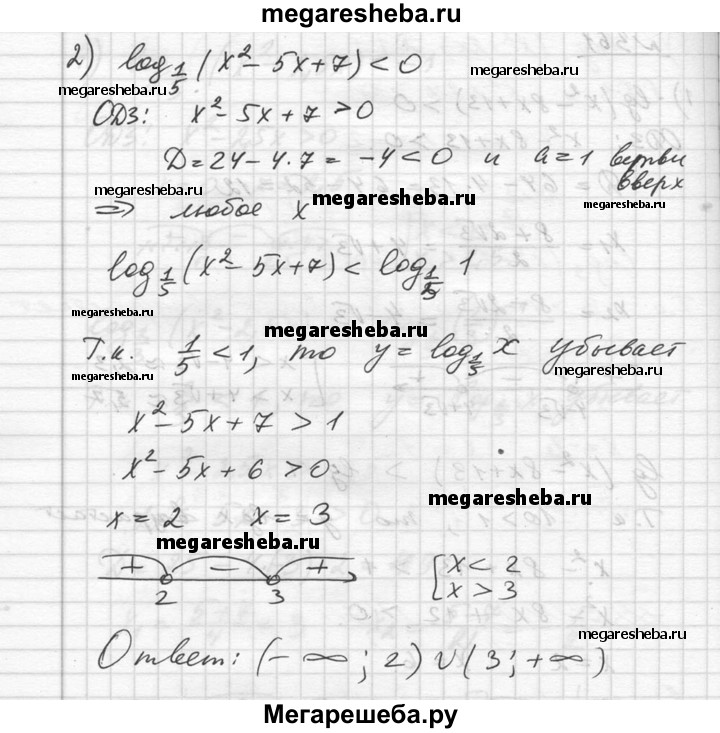 megaresheba.ru
2) log_{1/5} (x² - 5x + 7) < 0
megaresheba.ru
megaresheba.ru
ОДЗ: x² - 5x + 7 > 0
D = 24 - 4·7 = -4 < 0 и a = 1 ветви вверх
megaresheba.ru
megaresheba.ru
megaresheba.ru
⇒ любое x
log_{1/5} (x² - 5x + 7) < log_{1/5} 1
megaresheba.ru
megaresheba.ru
Т.к. 1/5 < 1, то y = log_{1/5} x убывает
megaresheba.ru
megaresheba.ru
x² - 5x + 7 > 1
x² - 5x + 6 > 0
megaresheba.ru
x = 2 x = 3
megaresheba.ru
+ - +
2 3
[x < 2
x > 3
megaresheba.ru
Ответ: (-∞; 2) ∪ (3; +∞)
Мегарешеба.ру